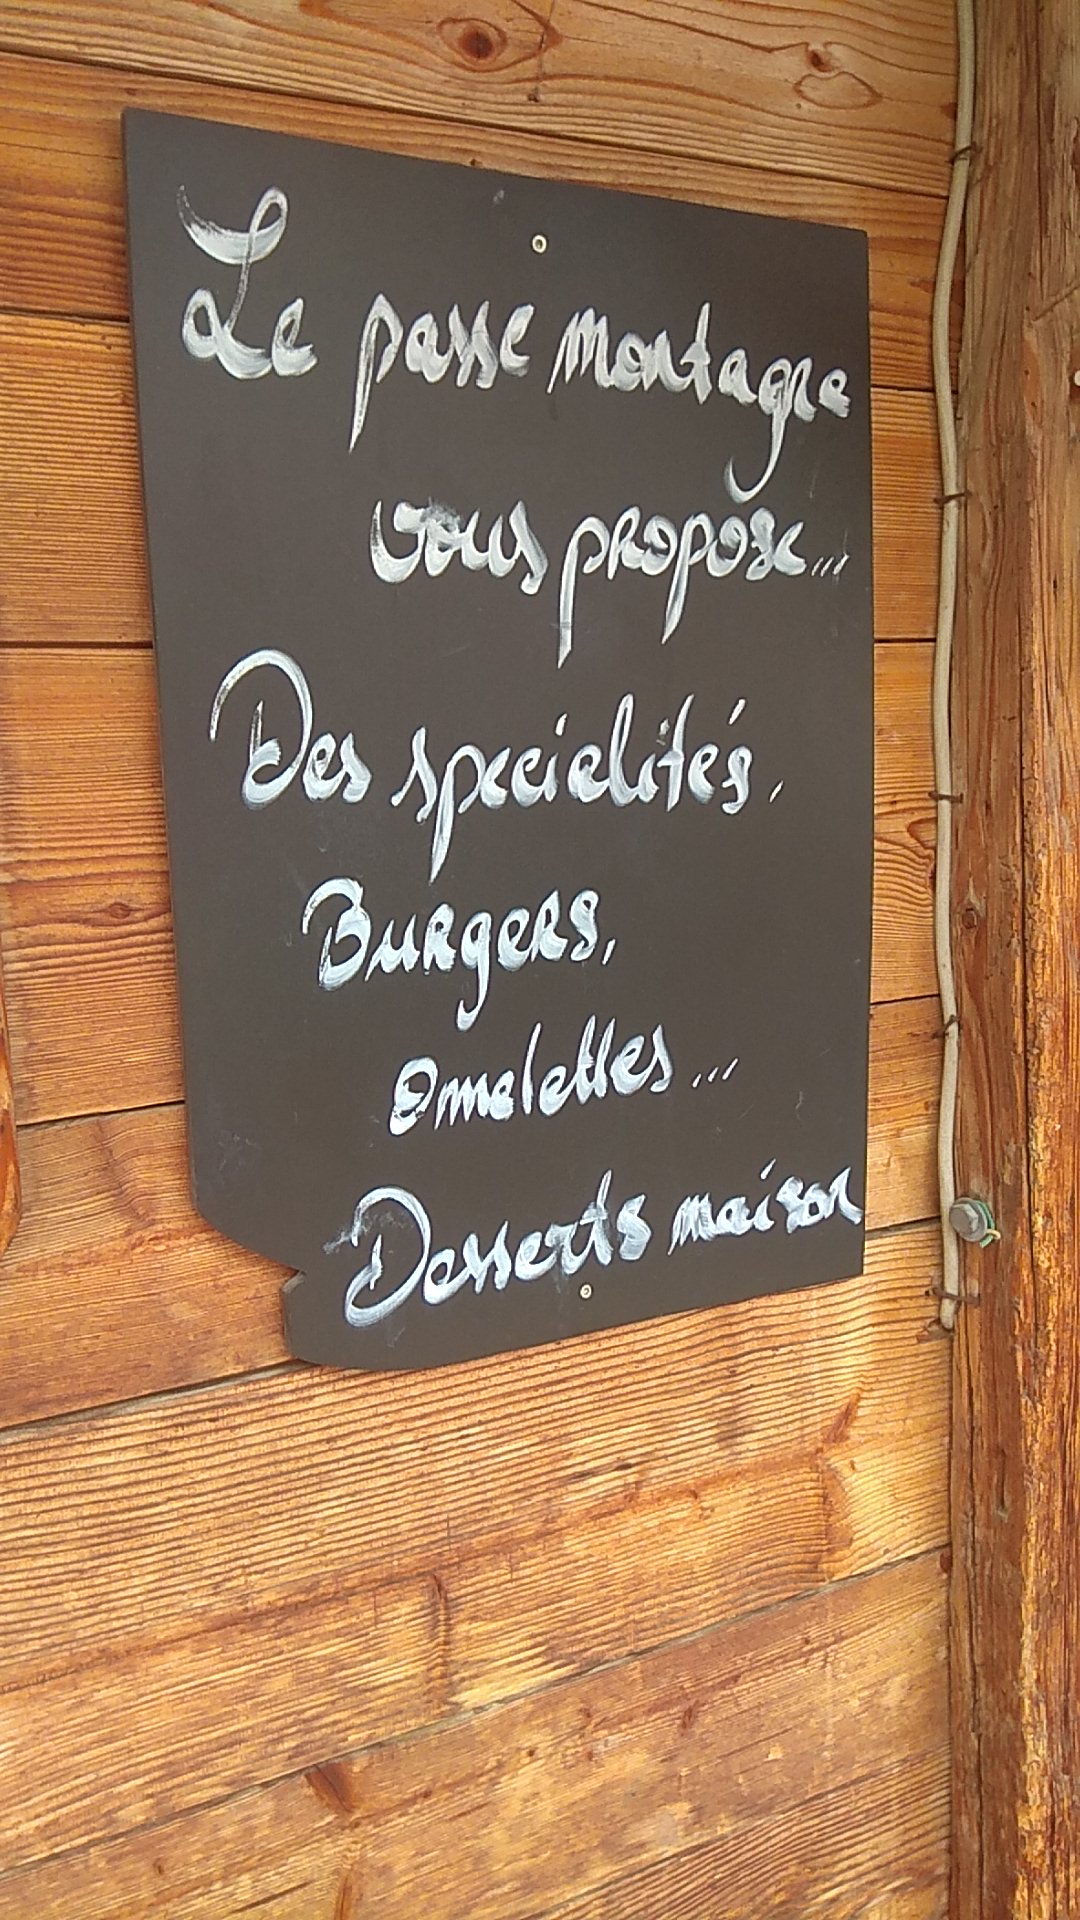 Le passe montagne
vous propose...
Des spécialités,
Burgers,
Omelettes...
Desserts maison